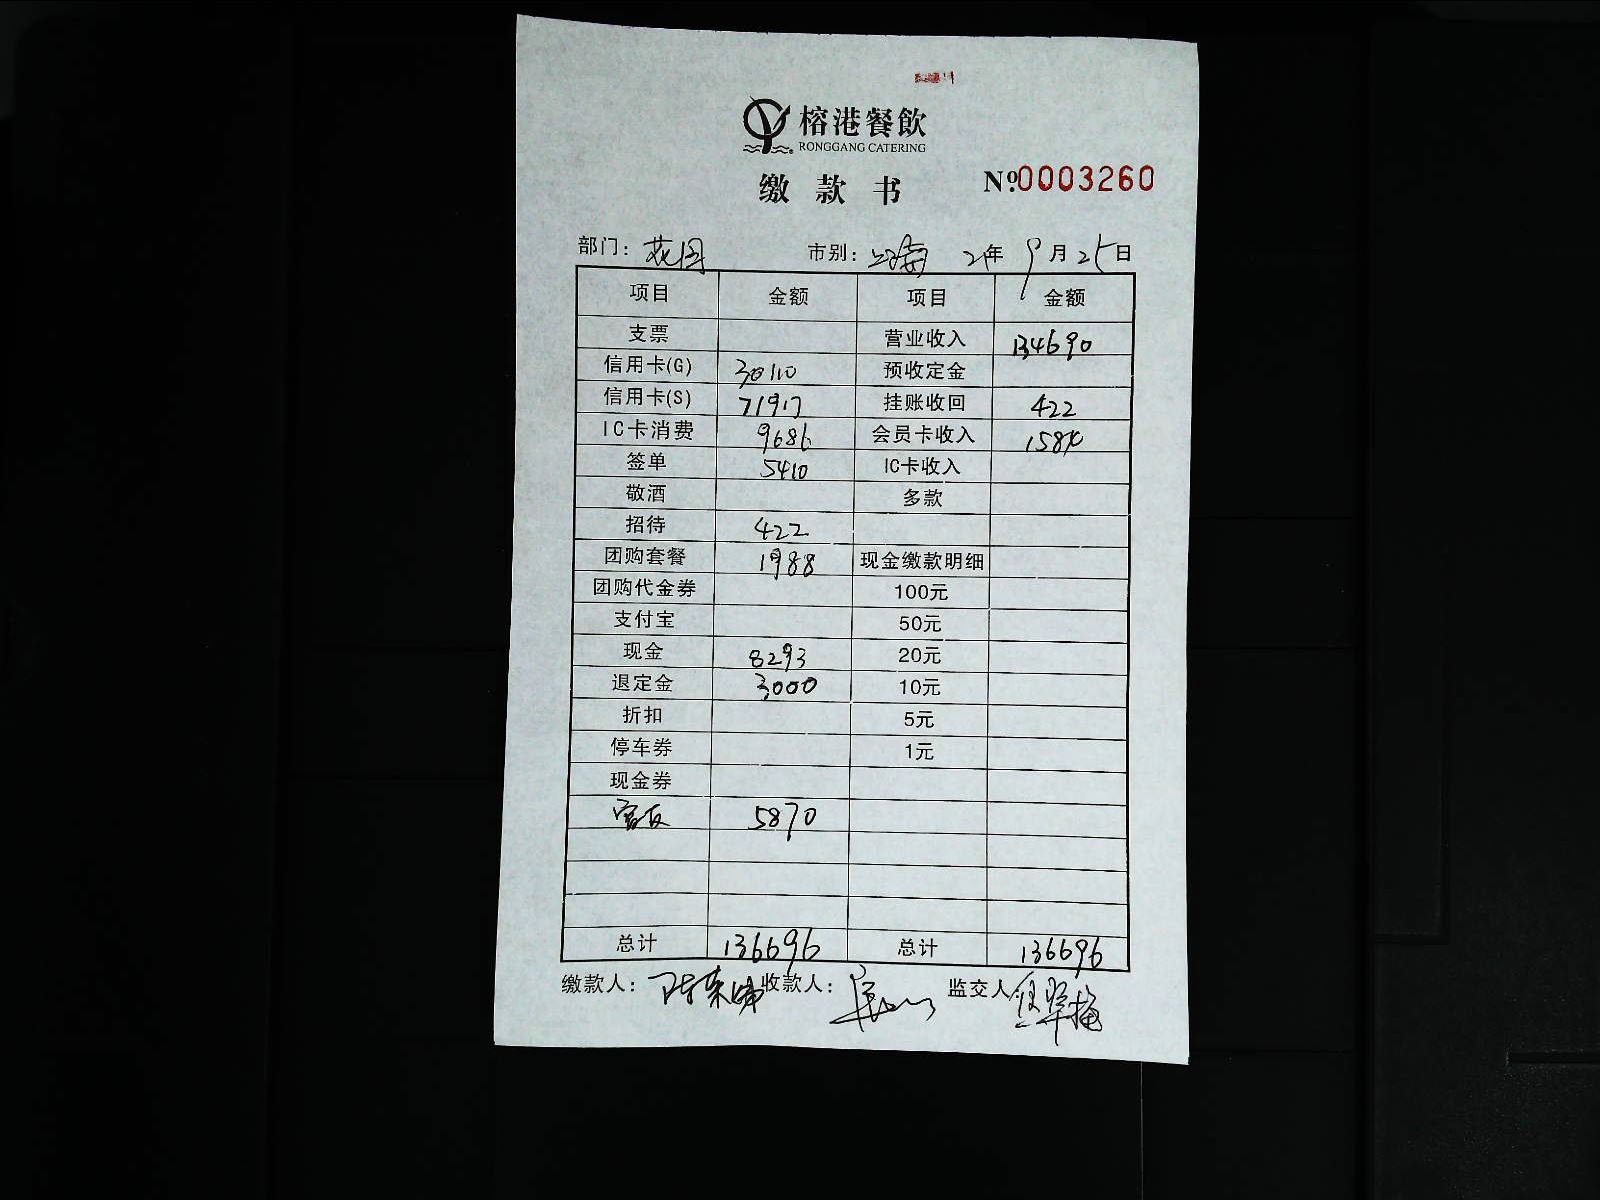 榕港餐飲
RONGGANG CATERING
缴款书 №0003260
部门: 花园 市别: 2年 9月25日
项目 金额 项目 金额
支票 营业收入 134690
信用卡(G) 30110 预收定金
信用卡(S) 71917 挂账收回 422
IC卡消费 9686 会员卡收入 1584
签单 5410 IC卡收入
敬酒 多款
招待 422
团购套餐 1988 现金缴款明细
团购代金券 100元
支付宝 50元
现金 8293 20元
退定金 3000 10元
折扣 5元
停车券 1元
现金券
5870
总计 136696 总计 136696
缴款人: 收款人: 监交人